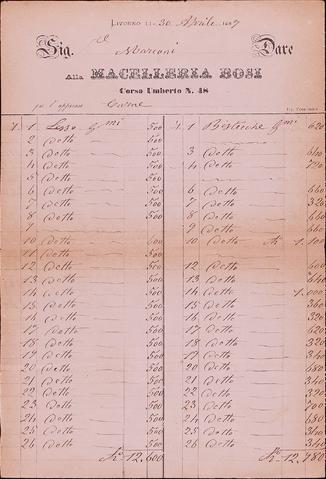 Livorno li 30 Aprile 1887
Sig. Marconi Dare
Alla MACELLERIA BOSI
Corso Umberto N. 48
per l'appresso Carne
1 Lesso Gmi 500 1 Bistecche Gmi 620
2 Detto 500
3 Detto 500 3 Detto 640
4 Detto 500 4 Detto 720
5 Detto 500
6 Detto 500 6 Detto 660
7 Detto 500 7 Detto 320
8 Detto 500 8 Detto 660
9 Detto 660
10 Detto 600 10 Detto K 1.100
11 Detto 500
12 Detto 500 12 Detto 600
13 Detto 500 13 Detto 640
14 Detto 500 14 Detto 1.000
15 Detto 500 15 Detto 360
16 Detto 500 16 Detto 320
17 Detto 500 17 Detto 620
18 Detto 500 18 Detto 320
19 Detto 500 19 Detto 340
20 Detto 500 20 Detto 680
21 Detto 500 21 Detto 340
22 Detto 500 22 Detto 320
23 Detto 500 23 Detto 700
24 Detto 500 24 Detto 680
25 Detto 500 25 Detto 340
26 Detto 500 26 Detto 340
K 12,600 K 12,780